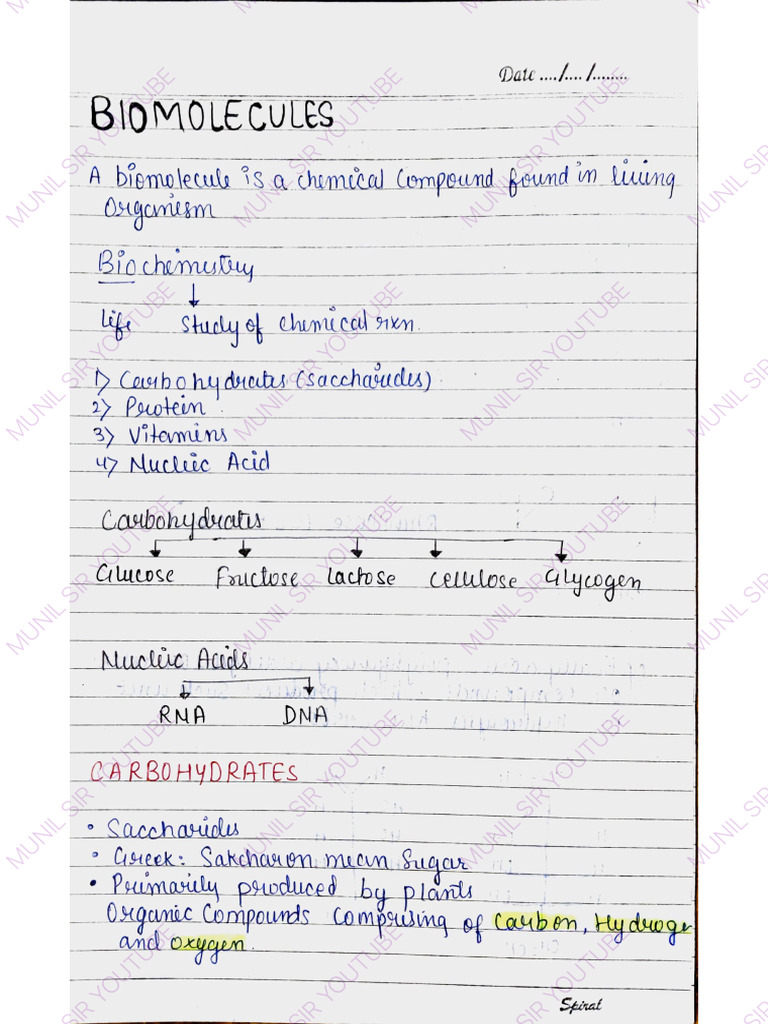 Date ..../..../........
BIOMOLECULES
A biomolecule is a chemical compound found in living
Organism
Biochemistry
Life Study of chemical rxn.
1) Carbohydrates (saccharides)
2) Protein
3) Vitamins
4) Nucleic Acid
Carbohydrates
Glucose Fructose Lactose Cellulose Glycogen
Nucleic Acids
RNA DNA
CARBOHYDRATES
• Saccharides
• Greek: Sakcharon mean Sugar
• Primarily produced by plants
Organic Compounds comprising of Carbon, Hydrogen
and oxygen.
Spiral
MUNIL SIR YOUTUBE